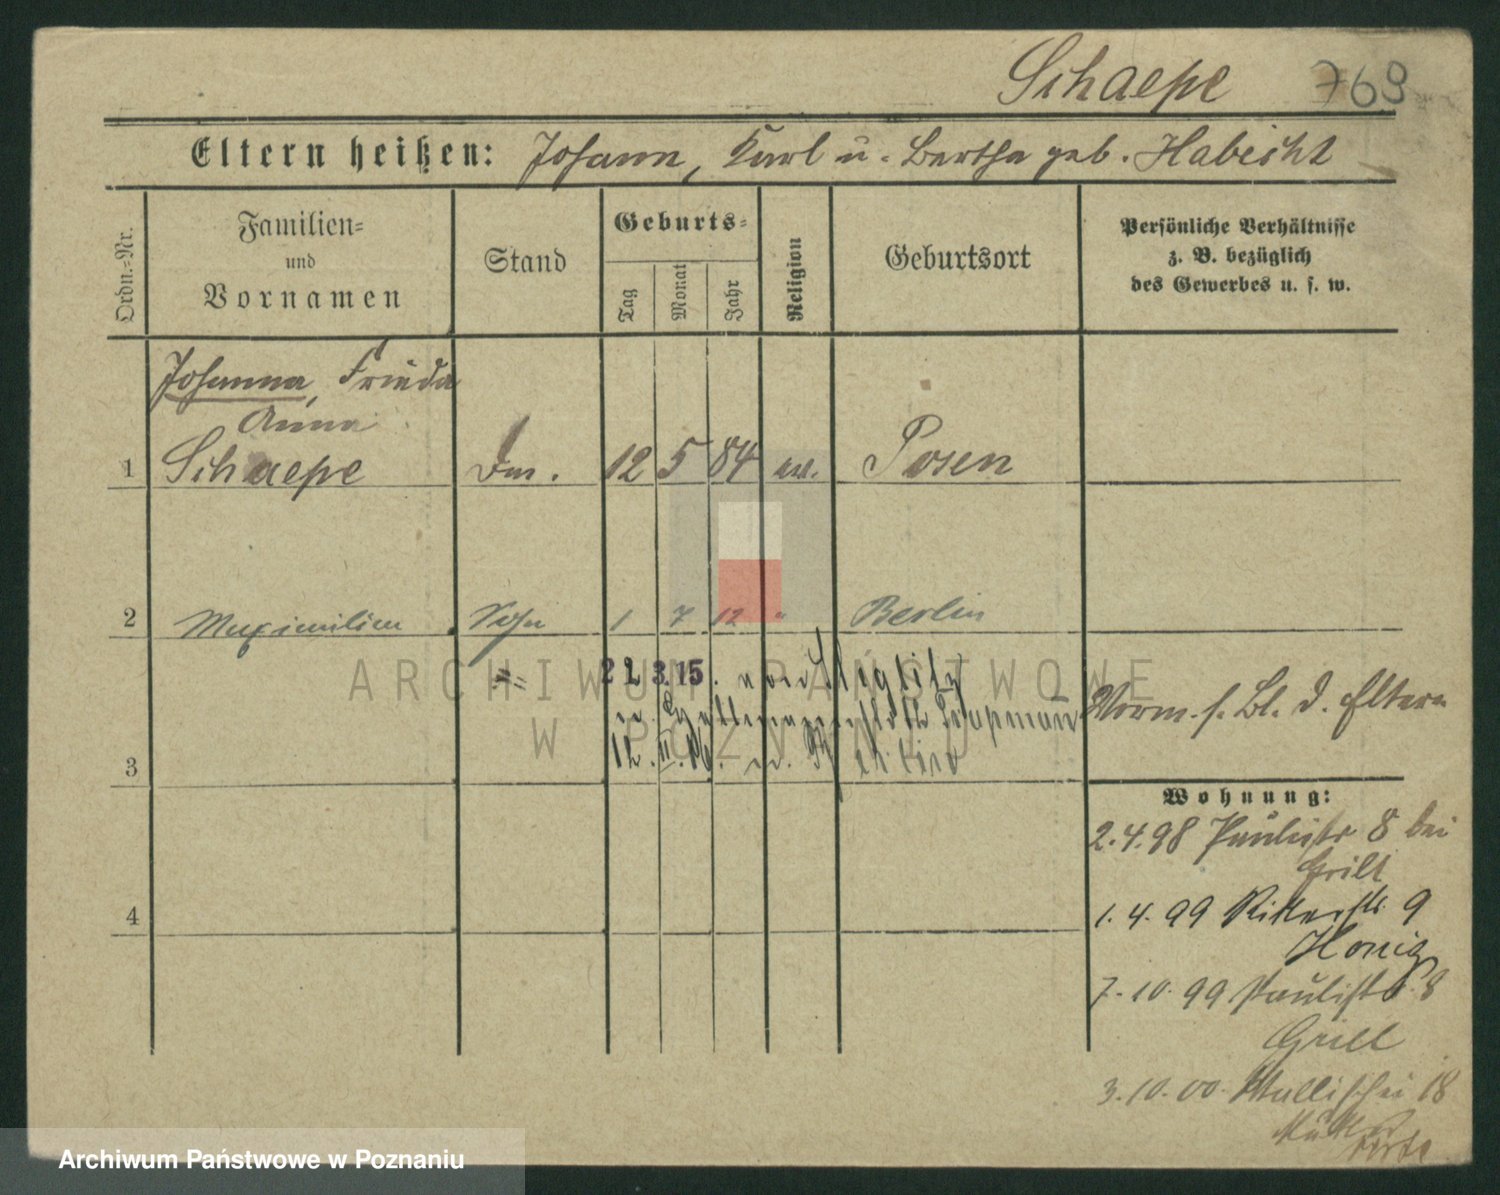 Schaepe 769
Eltern heißen: Johann, Karl u. Bertha geb. Habicht
Ordn.-Nr.
Familien-
und
Vornamen
Stand
Geburts-
Tag
Monat
Jahr
Religion
Geburtsort
Persönliche Verhältnisse
z. B. bezüglich
des Gewerbes u. s. w.
Johanna, Frieda
Anna
1 Schaepe 12 5 84 ev. Posen
2 Maximilian Sohn 1 7 12 " Berlin
22.3.15.
12.II.16.
3
Vorm. s. Bl. d. Eltern
Wohnung:
2.4.98 Paulistr 8 bei
Grill
1.4.99 Ritterstr. 9
Honig
7.10.99 Paulistr. 8
Grill
3.10.00 Wallischei 18
Mutter
4
ARCHIWUM PAŃSTWOWE
W POZNANIU
Archiwum Państwowe w Poznaniu